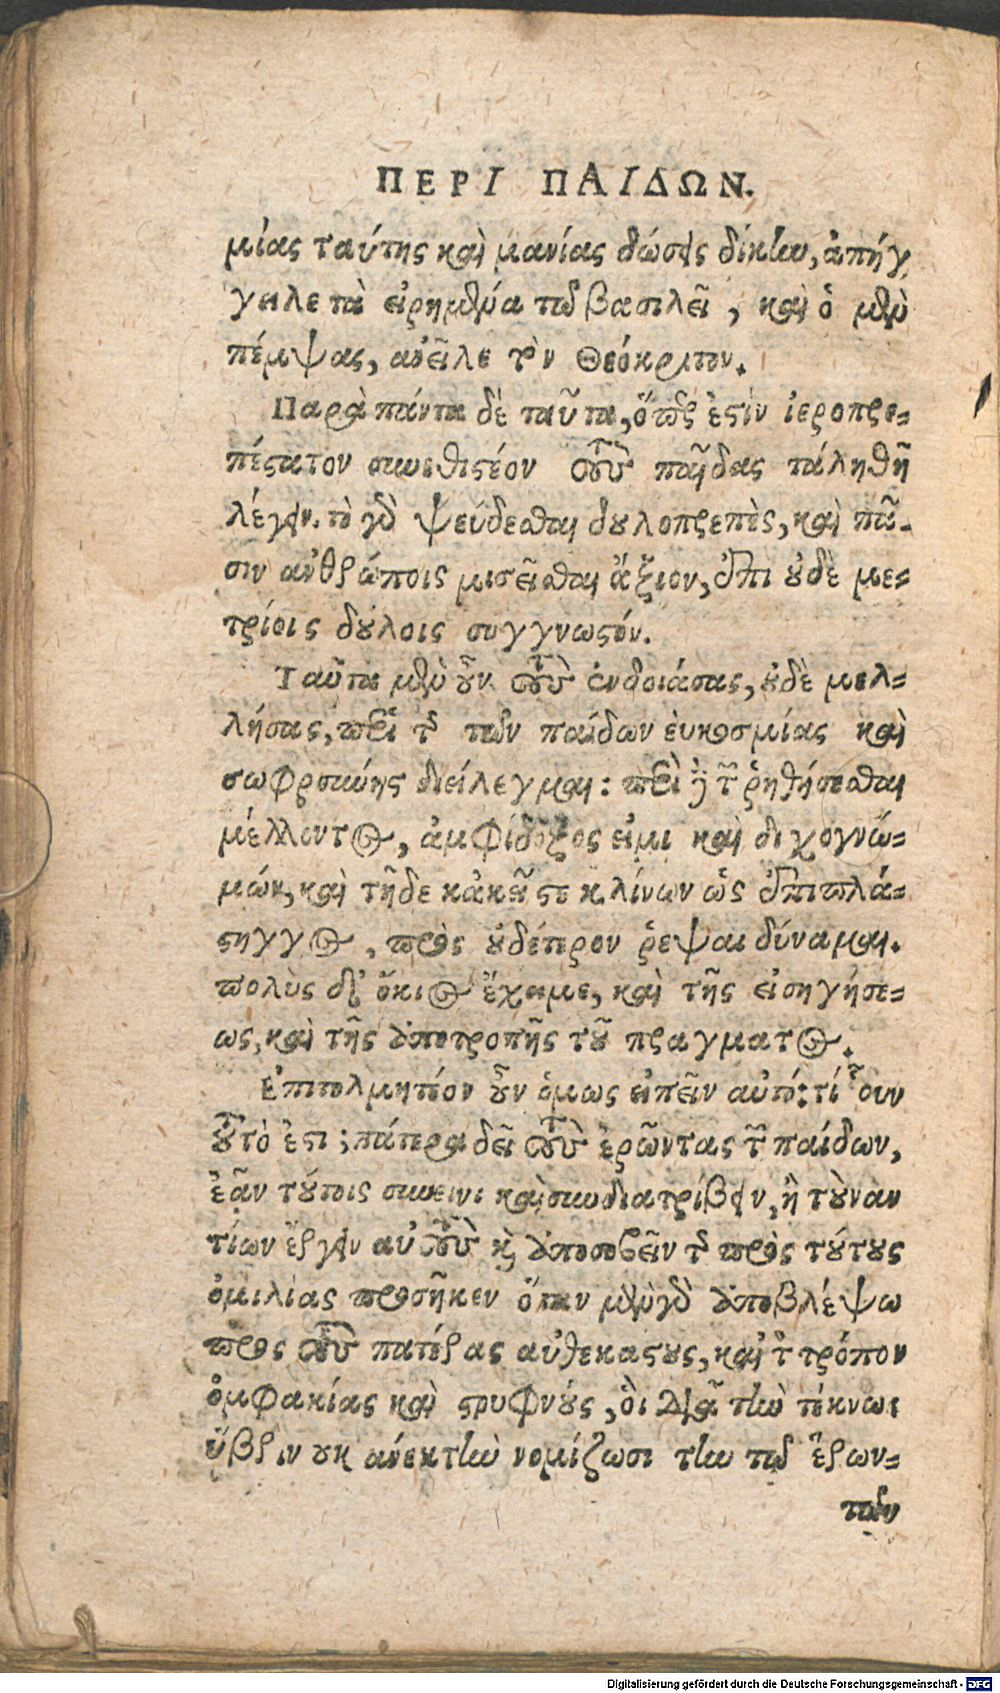 ΠΕΡΙ ΠΑΙΔΩΝ.
μίας ταύτης καὶ μανίας δώσεις δίκην, ἀπήγ
γειλε τὰ εἰρημένα τῷ βασιλεῖ, καὶ ὁ μὲν
πέμψας, ἀνεῖλε τὸν Θεόκριτον.
Παρὰ πάντα δὲ ταῦτα, ὅπερ ἐστὶν ἱεροπρε-
πέστατον συνεθιστέον τοὺς παῖδας τἀληθῆ
λέγειν. τὸ γὰρ ψεύδεσθαι δουλοπρεπὲς, καὶ πᾶ-
σιν ἀνθρώποις μισεῖσθαι ἄξιον, ἔτι οὐδὲ με-
τρίοις δούλοις συγγνωστόν.
Ταῦτα μὲν οὖν οὐκ ἐνδοιάσας, οὐδὲ μελ-
λήσας, περὶ τῆς τῶν παίδων εὐκοσμίας καὶ
σωφροσύνης διείλεγμαι: περὶ δὲ τοῦ ῥηθήσεσθαι
μέλλοντος, ἀμφίδοξος εἰμι καὶ διχογνώ-
μων, καὶ τῇδε κἀκεῖσε κλίνων ὡς ἐπὶ πλά-
στιγγος, πρὸς οὐδέτερον ῥεψαι δύναμαι.
πολὺς δ' ὄκνος ἔχει με, καὶ τῆς εἰσηγήσε-
ως, καὶ τῆς ἀποτροπῆς τοῦ πραγματος.
Ἐπιτολμητέον οὖν ὁμως εἰπεῖν αὐτό: τί οὖν
τοῦτό ἐστι; πότερα δεῖ τοὺς ἐρῶντας τῶν παίδων,
ἐᾶν τούτοις συνεῖναι καὶ συνδιατρίβειν, ἢ τοὐναν
τίον εἴργειν αὐτοὺς καὶ ἀποσοβεῖν τῆς πρὸς τούτους
ὁμιλίας προσῆκεν ὅταν μὲν γὰρ ἀποβλέψω
προς τοὺς πατέρας αὐθεκαστους, καὶ τὸν τρόπον
ὀμφακίας καὶ στρυφνούς, οἳ διὰ τὴν τέκνων
ὕβριν οὐκ ἀνεκτὴν νομίζωσι τὴν τῶν ἐρων-
των